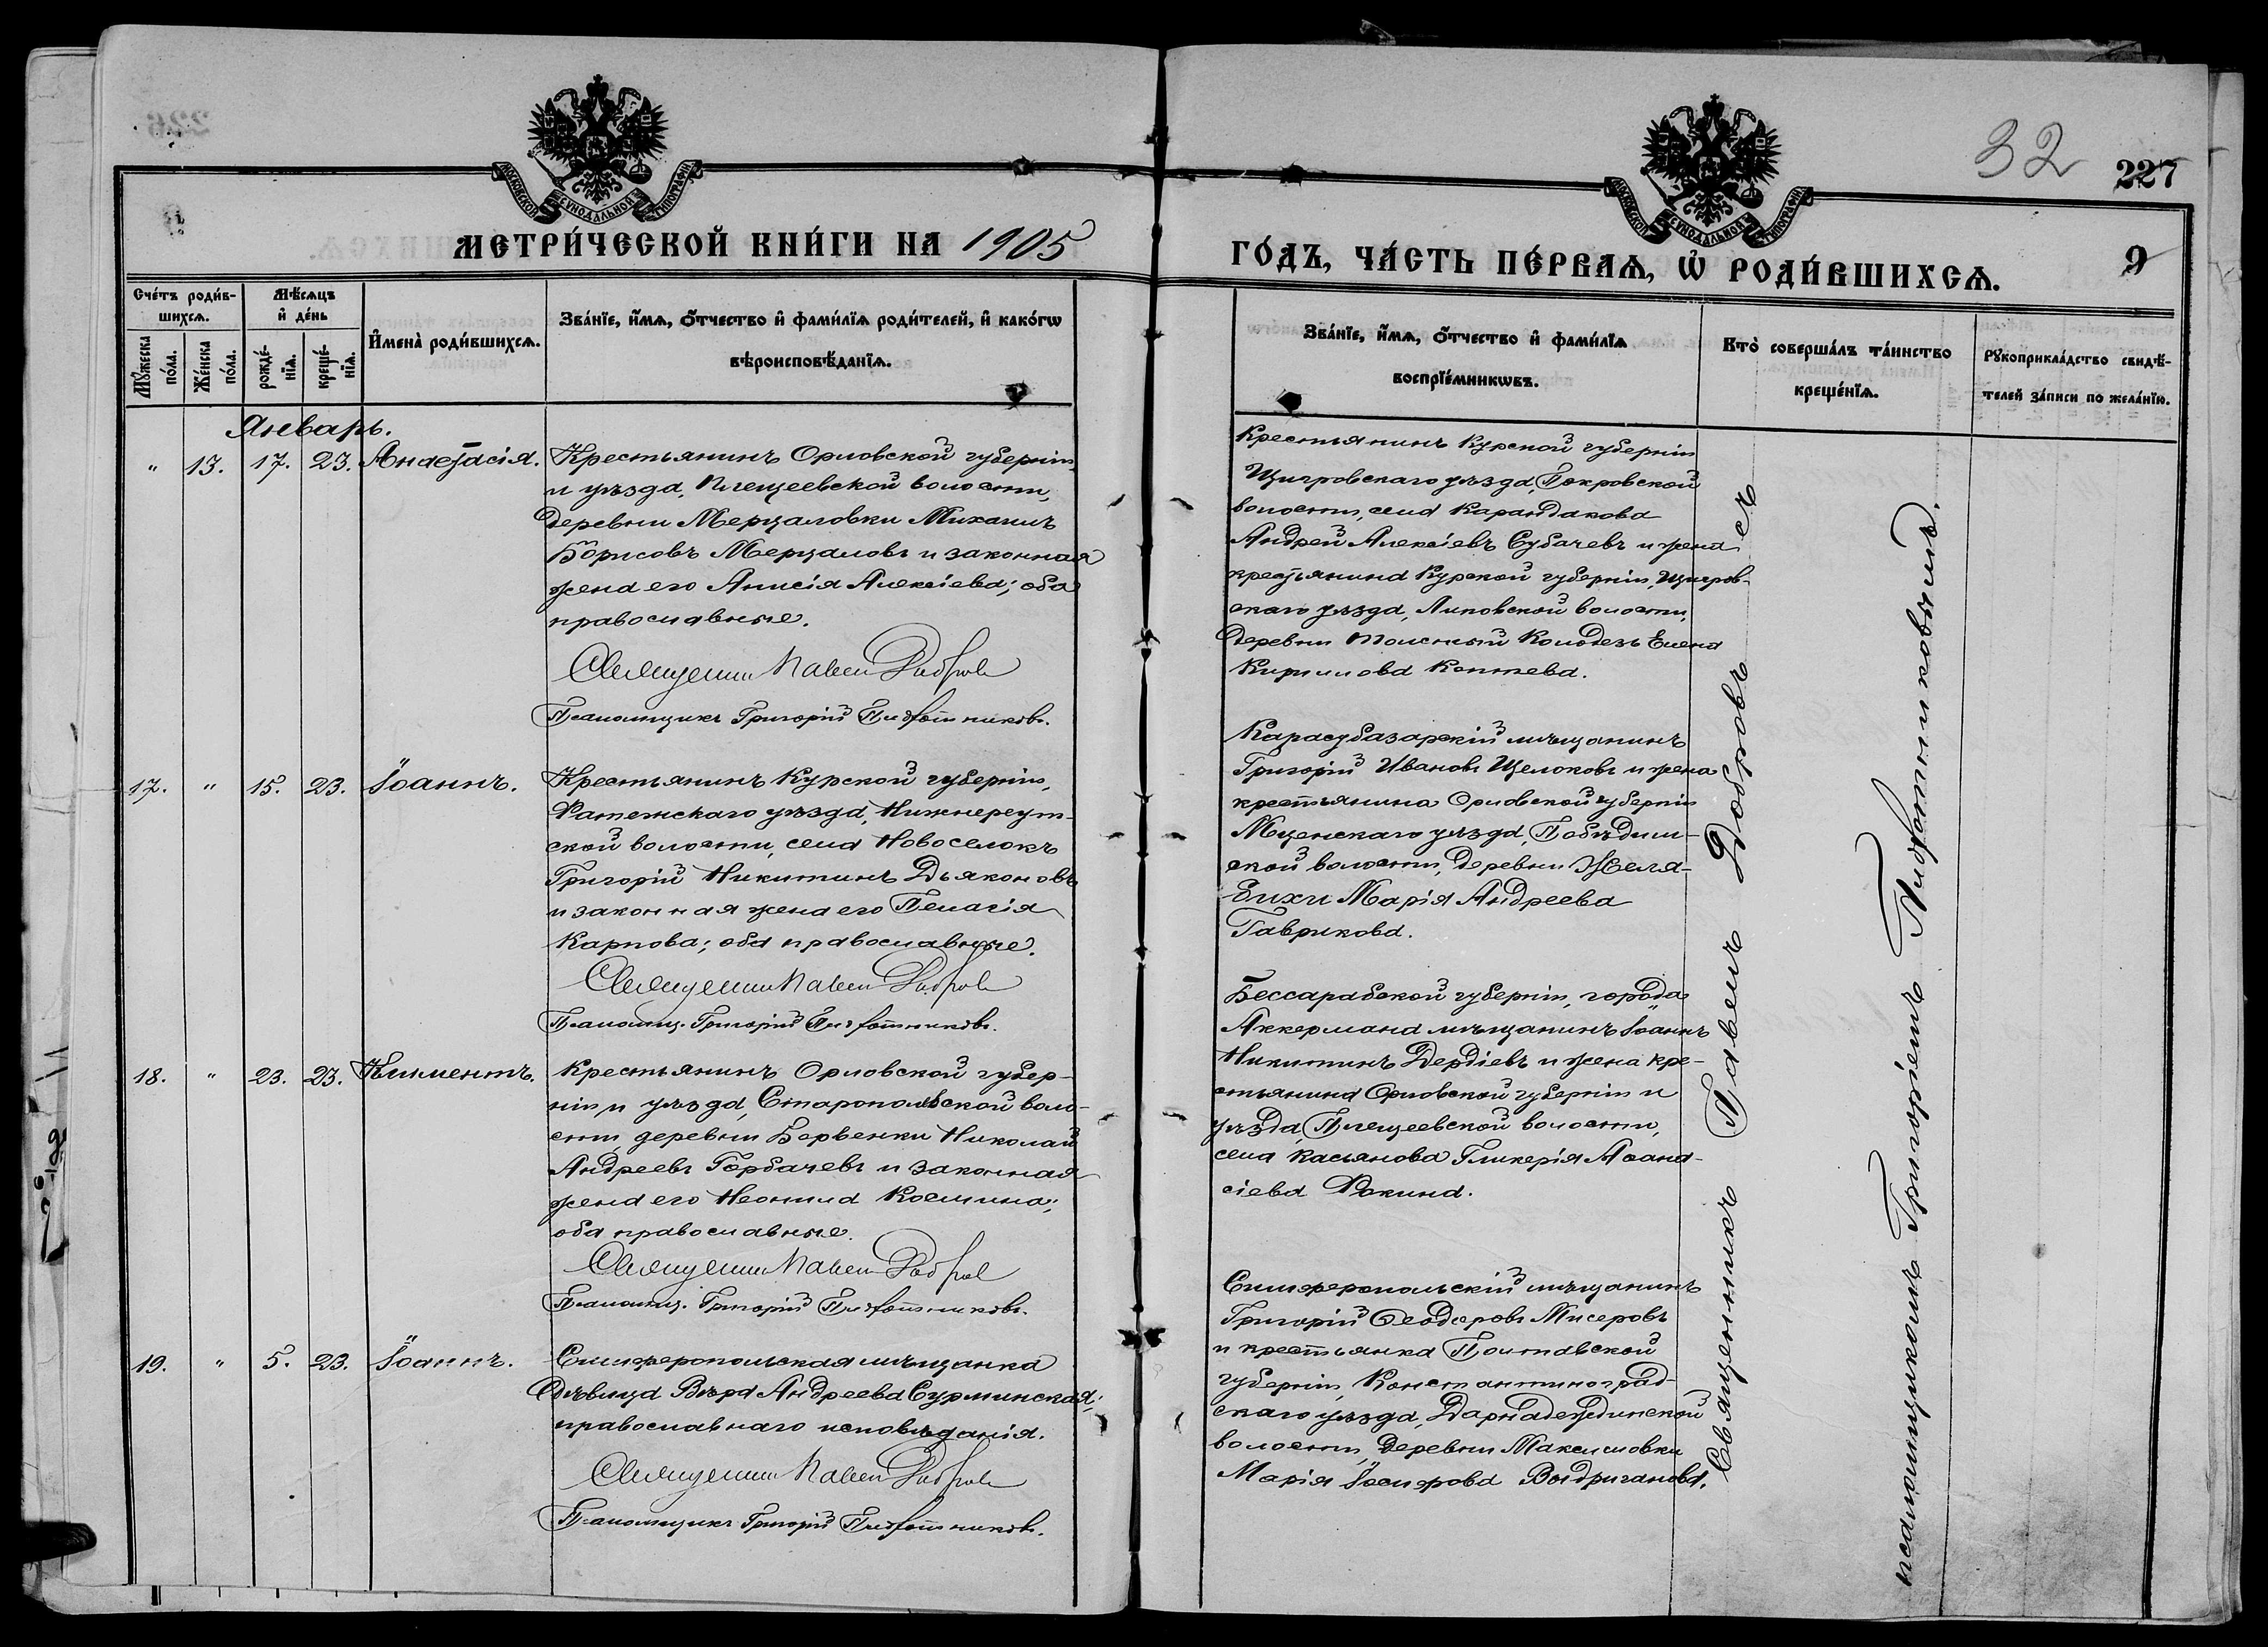 32
227
МОСКОВСКОЙ СѴНОДАЛЬНОЙ ТИПОГРАФІИ
МОСКОВСКОЙ СѴНОДАЛЬНОЙ ТИПОГРАФІИ
МЕТРИ́ЧЕСКОЙ КНИ́ГИ НА 1905
ГО́ДЪ, ЧА́СТЬ ПЕ́РВАѦ, Ѡ҆ РОДИ́ВШИХСѦ.
9
Сче́тъ роди́в-
шихсѧ.
Мѣ́сѧцъ
и҆ де́нь
Мꙋ́жеска
по́ла.
Же́нска
по́ла.
рожде́-
нїѧ.
креще́-
нїѧ.
И҆мена̀ роди́вшихсѧ.
Зва́нїе, и҆́мѧ, ѻ҆́тчество и҆ фами́лїѧ роди́телей, и҆ како́гѡ
вѣроисповѣ́данїѧ.
Зва́нїе, и҆́мѧ, ѻ҆́тчество и҆ фами́лїѧ
воспрїе́мникѡвъ.
Кто̀ соверша́лъ та́инство
креще́нїѧ.
Рꙋкоприкла́дство свидѣ́-
телей за́писи по жела́нїю.
Январь.
" 13. 17. 23. Анастасія.
Крестьянинъ Орловской губерніи
и уѣзда, Плещеевской волости,
деревни Мерцаловки Михаилъ
Борисовъ Мерцаловъ и законная
жена его Анисія Алексіева; оба
православные.
Священник Павел Добров
Псаломщикъ Григорій Плотниковъ.
Крестьянинъ Курской губерніи
Щигровскаго уѣзда, Покровской
волости, села Карандакова
Андрей Алексіевъ Субачевъ и жена
крестьянина Курской губерніи, Щигров-
скаго уѣзда, Липовской волости,
деревни Колодезь Елена
Кириллова Коптева.
17. " 15. 23. Іоаннъ.
Крестьянинъ Курской губерніи,
Фатежскаго уѣзда, Нижнереут-
ской волости, села Новоселокъ
Григорій Никитинъ Дьяконовъ
и законная жена его Пелагія
Карпова; оба православные.
Священник Павел Добров
Псаломщ. Григорій Плотниковъ.
Карасубазарскій мѣщанинъ
Григорій Ивановъ Щелоковъ и жена
крестьянина Орловской губерніи
Мценскаго уѣзда,
ской волости, деревни Желя-
бихи Марія Андреева
Гаврикова.
18. " 23. 23. Климентъ.
Крестьянинъ Орловской губер-
ніи и уѣзда, Старопольской воло-
сти, деревни Бервенки Николай
Андреевъ Горбачевъ и законная
жена его Неонила Космина;
оба православные.
Священник Павел Добров
Псаломщ. Григорій Плотниковъ.
Бессарабской губерніи, города
Аккермана мѣщанинъ Іоаннъ
Никитинъ Дердіевъ и жена кре-
стьянина Орловской губерніи и
уѣзда, Плещеевской волости,
села Касьянова Гликерія Аѳана-
сіева Фокина.
19. " 5. 23. Іоаннъ.
Симферопольская мѣщанка
дѣвица Вѣра Андреева Сурминская;
православнаго исповѣданія.
Священник Павел Добров
Псаломщикъ Григорій Плотниковъ.
Симферопольскій мѣщанинъ
Григорій Ѳеодоровъ Мисеровъ
и крестьянка Полтавской
губерніи, Константиноград-
скаго уѣзда,
волости, деревни Максимовки
Марія Іосифова Выдриганова.
Священникъ Павелъ Добровъ съ
псаломщикомъ Григоріемъ Плотниковымъ.